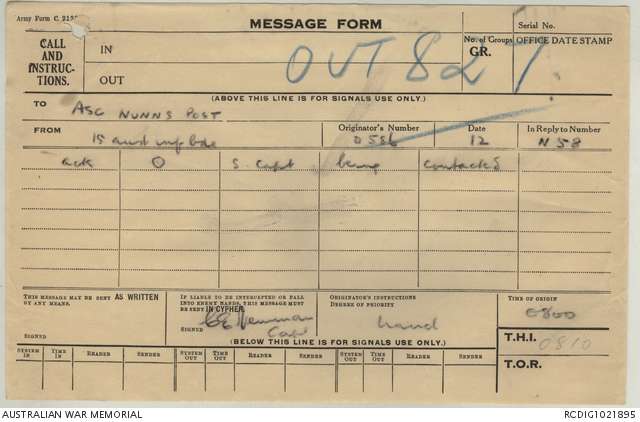 Army Form C. 212
MESSAGE FORM
Serial No.
CALL AND INSTRUCTIONS.
IN
OUT
OUT 827
No. of Groups GR.
OFFICE DATE STAMP
(ABOVE THIS LINE IS FOR SIGNALS USE ONLY.)
TO ASC NUNNS POST
FROM 15 aust inf bde
Originator's Number 0556
Date 12
In Reply to Number N 58
ack O S. Capt being contacted
THIS MESSAGE MAY BE SENT AS WRITTEN BY ANY MEANS.
SIGNED
IF LIABLE TO BE INTERCEPTED OR FALL INTO ENEMY HANDS, THIS MESSAGE MUST BE SENT IN CYPHER.
SIGNED Newman Capt
ORIGINATOR'S INSTRUCTIONS DEGREE OF PRIORITY
hand
TIME OF ORIGIN
0800
(BELOW THIS LINE IS FOR SIGNALS USE ONLY.)
T.H.I. 0810
T.O.R.
SYSTEM IN TIME IN READER SENDER SYSTEM OUT TIME OUT READER SENDER SYSTEM OUT TIME OUT READER SENDER
AUSTRALIAN WAR MEMORIAL
RCDIG1021895